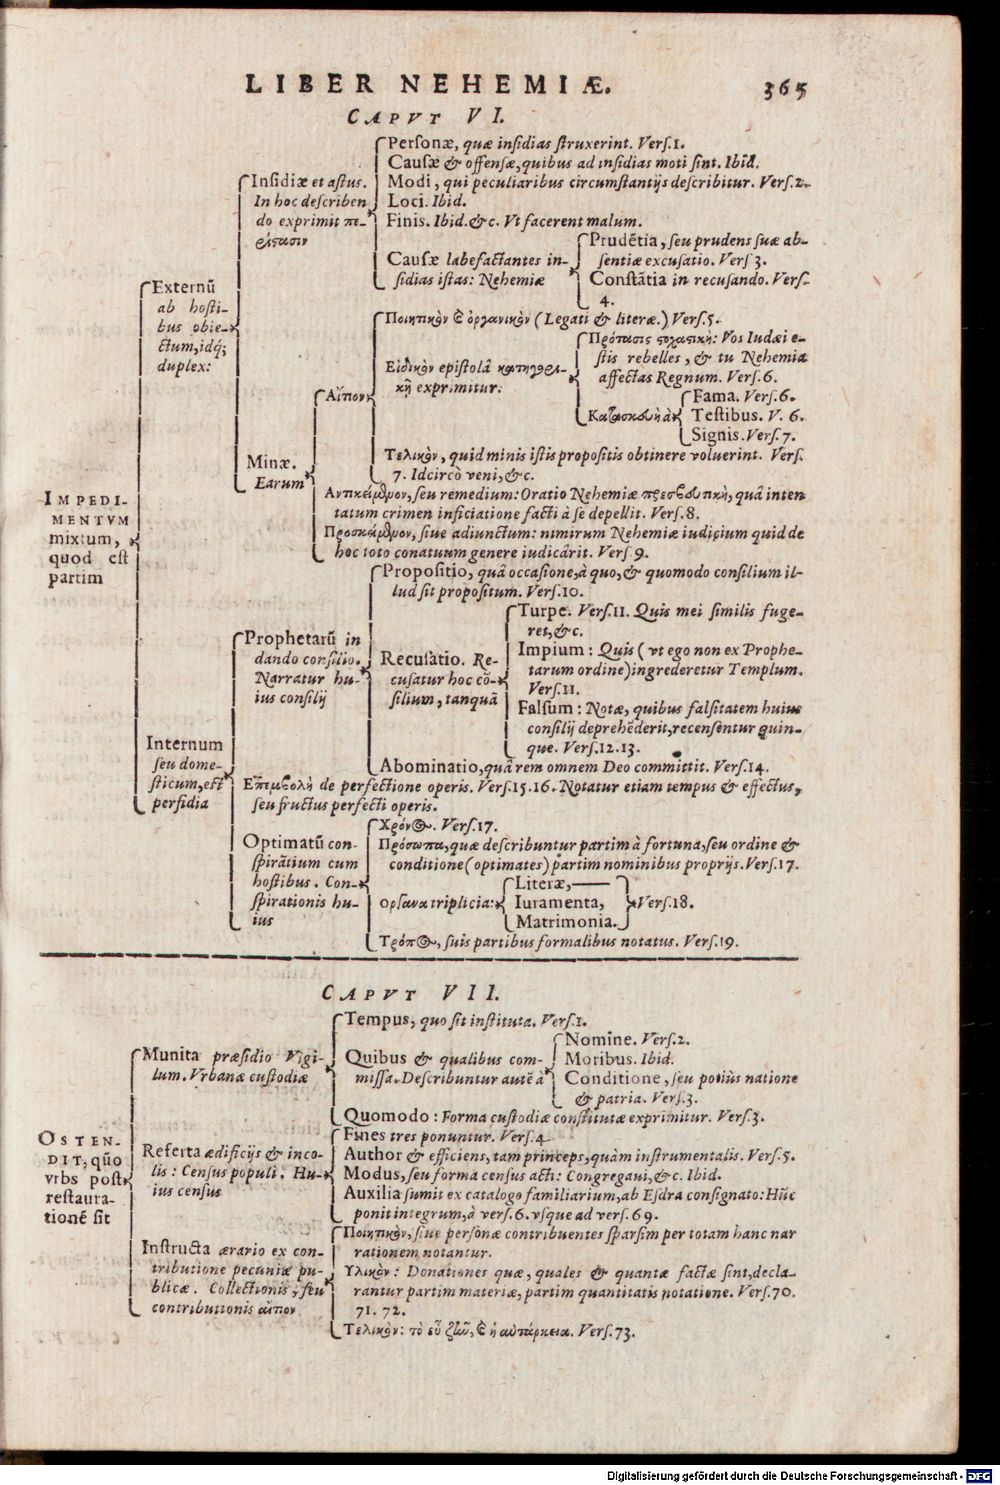 LIBER NEHEMIÆ. 365
CAPVT VI.
Personæ, quæ insidias struxerint. Vers.1.
Causæ & offensæ, quibus ad insidias moti sint. Ibid.
Insidiæ et astus.
Modi, qui peculiaribus circumstantijs describitur. Vers.2.
In hoc describen
Loci. Ibid.
do exprimit πε-
Finis. Ibid. &c. Vt facerent malum.
ρίστασιν
Prudētia, seu prudens suæ ab-
Causæ labefactantes in-
sentiæ excusatio. Vers 3.
sidias istas: Nehemiæ
Constātia in recusando. Vers.
4.
Externū
ab hosti-
bus obie-
ctum, idq;
duplex:
Ποιητικὸν & ὀργανικὸν (Legati & literæ.) Vers.5.
Πρότασις στοχαστικὴ: Vos Iudæi e-
stis rebelles, & tu Nehemia
Εἰδικὸν epistolā κατηγορι-
affectas Regnum. Vers.6.
κῆ exprimitur:
Αἴτιον
Fama. Vers.6.
Κατασκευὴ à
Testibus. V. 6.
Signis. Vers.7.
Τελικὸν, quid minis istis propositis obtinere voluerint. Vers.
Minæ.
7. Idcircò veni, &c.
Earum
Αντικείμενον, seu remedium: Oratio Nehemiæ πρεσβευτικὴ, quâ inten
tatum crimen inficiatione facti à se depellit. Vers.8.
Προσκείμενον, siue adiunctum: nimirum Nehemiæ iudicium quid de
hoc toto conatuum genere iudicârit. Vers 9.
IMPEDI-
MENTVM
mixtum,
quod est
partim
Propositio, quâ occasione, à quo, & quomodo consilium il-
lud sit propositum. Vers.10.
Turpe. Vers.11. Quis mei similis fuge-
ret, &c.
Prophetarū in
Impium: Quis (vt ego non ex Prophe-
dando consilio.
Recusatio. Re-
tarum ordine) ingrederetur Templum.
Narratur hu-
cusatur hoc cō-
Vers.11.
ius consilij
silium, tanquā
Falsum: Notæ, quibus falsitatem huius
consilij deprehēderit, recensentur quin-
que. Vers.12.13.
Abominatio, quâ rem omnem Deo committit. Vers.14.
Internum
seu dome-
sticum, est
perfidia
Επεμβολὴ de perfectione operis. Vers.15.16. Notatur etiam tempus & effectus,
seu fructus perfecti operis.
Χρόνος. Vers.17.
Optimatū con-
Πρόσωπα, quæ describuntur partim à fortuna, seu ordine &
spirātium cum
conditione (optimates) partim nominibus proprijs. Vers.17.
hostibus. Con-
Literæ,
spirationis hu-
οργανα triplicia:
Iuramenta,
Vers.18.
ius
Matrimonia.
Τρόπος, suis partibus formalibus notatus. Vers.19.
CAPVT VII.
Tempus, quo sit instituta. Vers.1.
Nomine. Vers.2.
Munita præsidio Vigi-
Quibus & qualibus com-
Moribus. Ibid.
lum. Vrbanæ custodiæ
missa. Describuntur autē à
Conditione, seu potiùs natione
& patria. Vers.3.
Quomodo: Forma custodiæ constitutæ exprimitur. Vers.3.
OSTEN-
DIT, quō
vrbs post
restaura-
tionē sit
Fines tres ponuntur. Vers.4
Referta ædificijs & inco-
Author & efficiens, tam princeps, quàm instrumentalis. Vers.5.
lis: Census populi. Hu-
Modus, seu forma census acti: Congregaui, &c. Ibid.
ius census
Auxilia sumit ex catalogo familiarium, ab Esdra consignato: Hūc
ponit integrum, à vers.6. vsque ad vers.69.
Ποιητικὸν, siue personæ contribuentes sparsim per totam hanc nar
Instructa ærario ex con-
rationem notantur.
tributione pecuniæ pu-
Υλικὸν: Donationes quæ, quales & quantæ factæ sint, decla-
blicæ. Collectionis, seu
rantur partim materiæ, partim quantitatis notatione. Vers.70.
contributionis αἴτιον
71. 72.
Τελικὸν: τὸ εὖ ζῆν, & ἡ αὐτάρκεια. Vers.73.
Digitalisierung gefördert durch die Deutsche Forschungsgemeinschaft - DFG